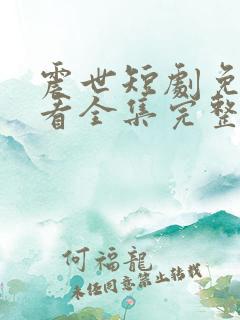 震世短劇免
看全集完整
何福龍
未经同意禁止转载